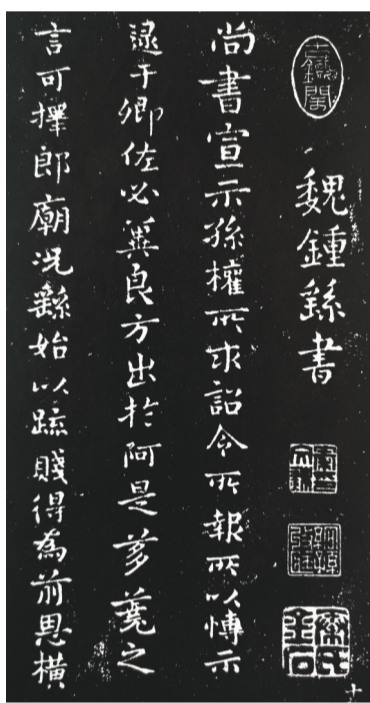 魏鍾繇書
尚書宣示孫權所求詔令所報所以博示
逮于卿佐必冀良方出於阿是芻蕘之
言可擇郎廟況繇始以疏賤得為前恩橫
十